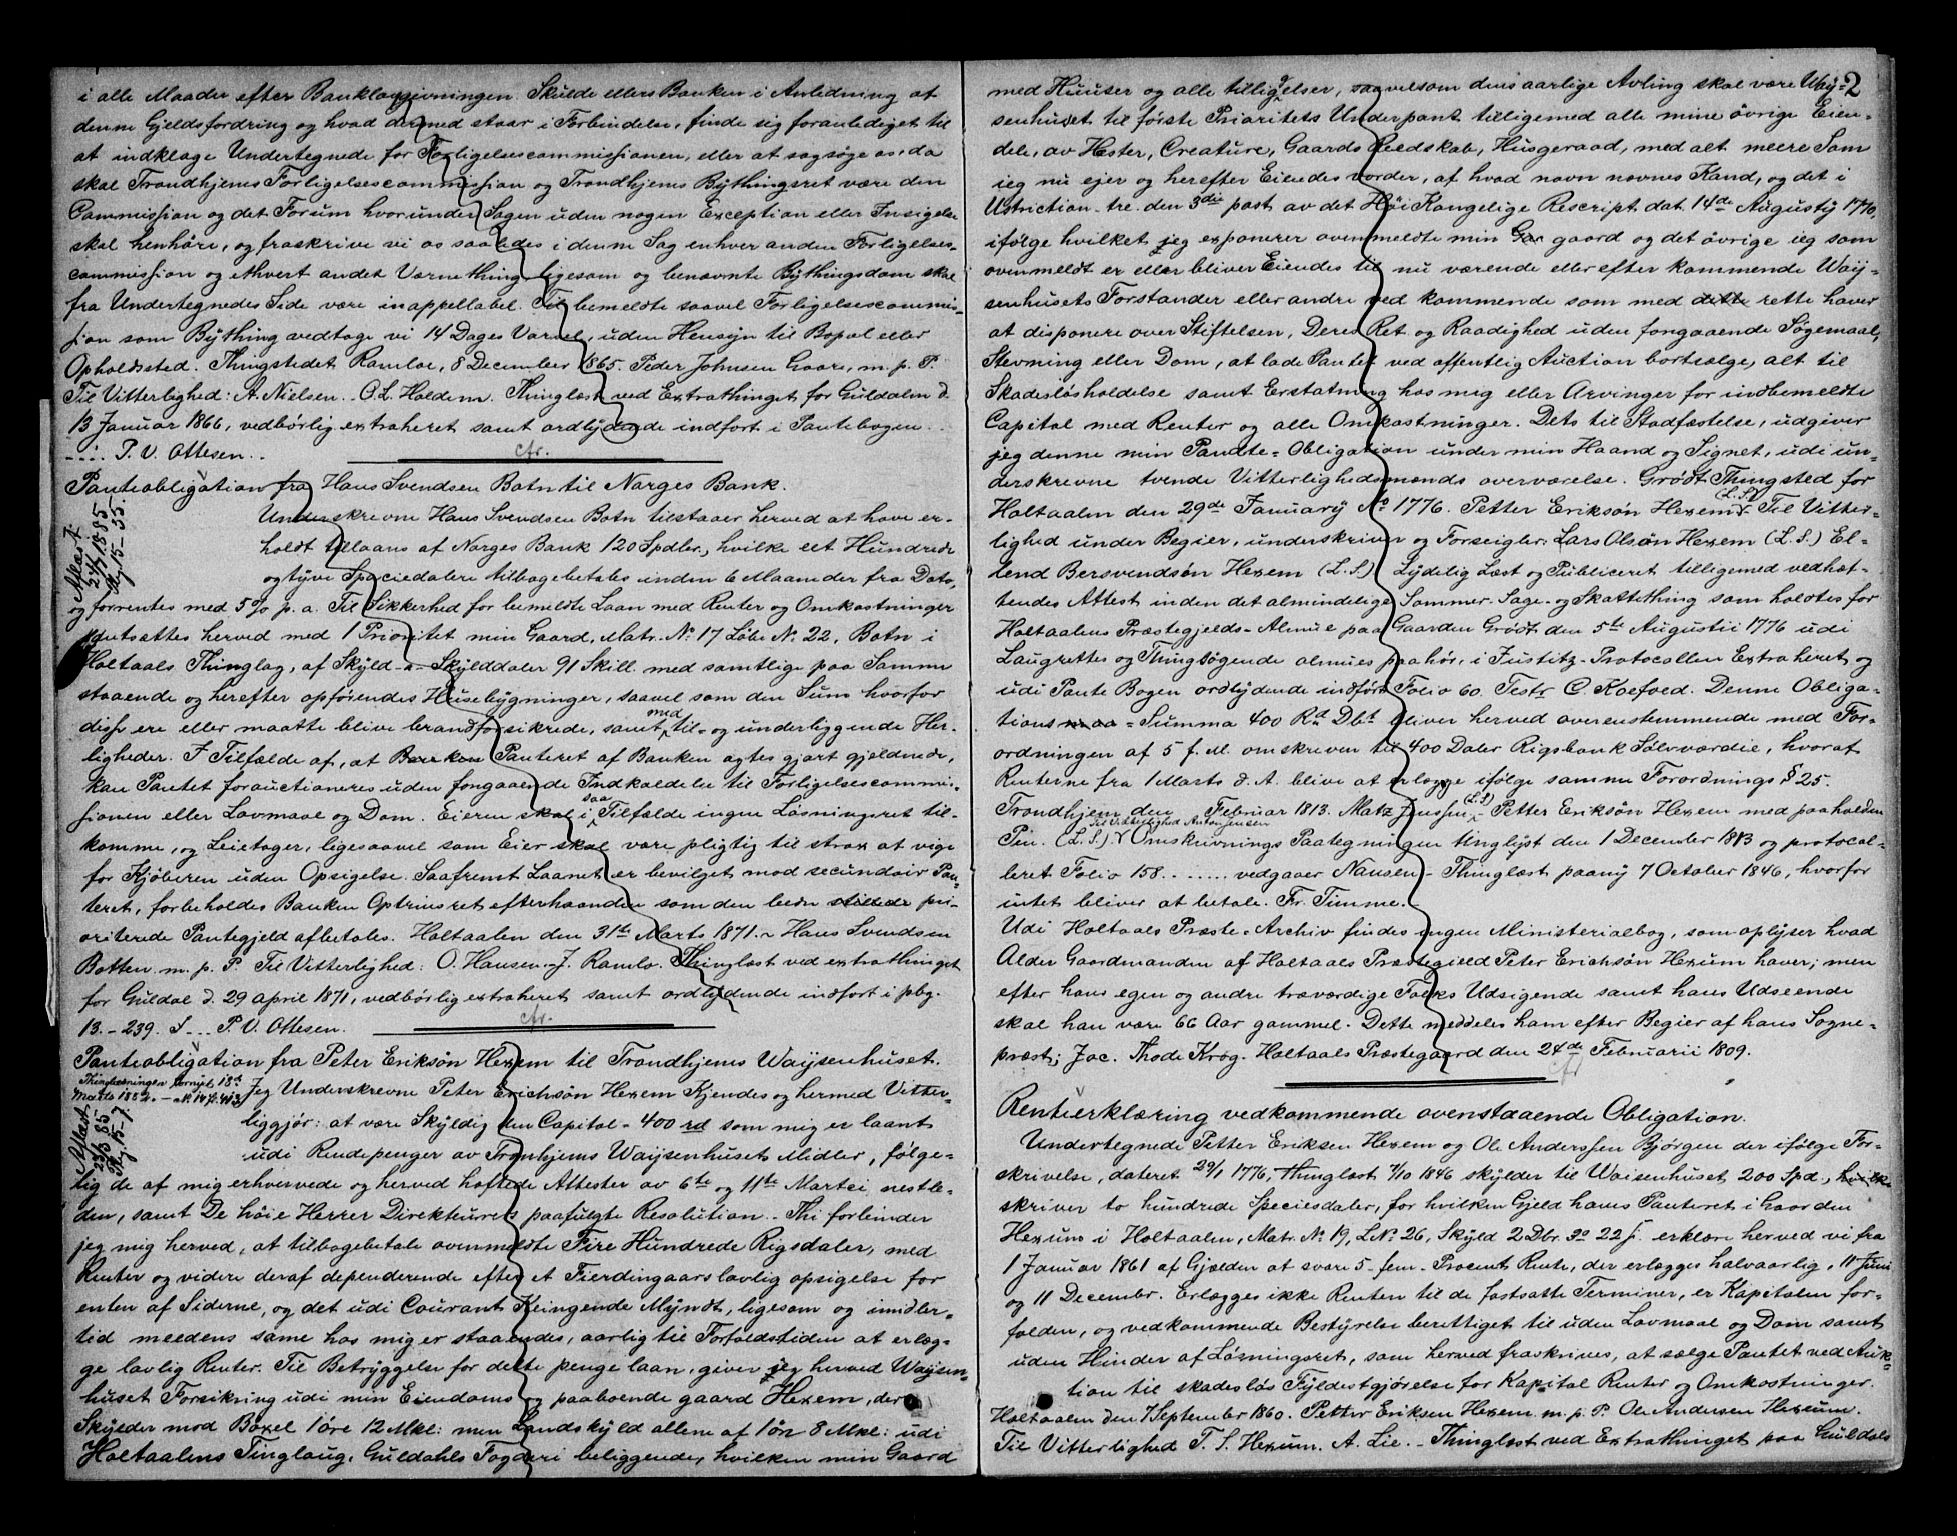 i alle Maader efter Banklovgivningen. Skulde ellers Banken i Anledning af
denne Gjeldsfordring og hvad dermed staar i Forbindelse, finde sig foranlediget til
at indklage Undertegnede for Forligelsescommissionen, eller at sagsøge os, da
skal Trondhjems Forligelsescommission og Trondhjems Bythingsret være den
Commission og det Forum hvorunder Sagen uden nogen Exception eller Insigelse
skal henhøre, og fraskrive vi os saaledes i denne Sag enhver anden Forligelses-
commission og ethvert andet Værnething ligesom og benævnte Bythingsdom skal
fra Undertegnedes Side være inappellabel. Til bemeldte saavel Forligelsescommis-
sion som Bything vedtage vi 14 Dages Varsel, uden Hensyn til Bopæl eller
Opholdssted. Thingstedet Ramloe, 8 December 1865. Peder Johnsen Gaare, m. p. P.
Til Vitterlighed: A. Nielsen. O. L. Holdem. Thinglæst ved Extrathinget for Guldalen d.
13 Januar 1866, vedbørlig extraheret samt ordlydende indført i Pantebogen.
P. V. Ottesen.
cfr.
Panteobligation fra Hans Svendsen Botn til Norges Bank.
Aflæst
21/7 1885
Pg. 15-35
Underskrevne Hans Svendsen Botn tilstaaer herved at have er-
holdt tillaans af Norges Bank 120 Spdlr., hvilke eet Hundrede
og tyve Speciedalere tilbagebetales inden 6 Maaneder fra Dato,
og forrentes med 5% p. a. Til Sikkerhed for bemeldte Laan med Renter og Omkostninger
pantsættes herved med 1 Prioritet min Gaard, Matr. No 17 Løbe No 22, Botn i
Holtaals Thinglag, af Skyld - a - Skylddaler 91 Skill. med samtlige paa Samme
staaende og herefter opførendes Husebygninger, saavel som den Sum hvorfor
disse ere eller maatte blive brandforsikrede, samt med til- og underliggende Her-
ligheder. I Tilfælde af, at Banken Panteret af Banken agtes gjort gjældende,
kan Pantet forauctioneres uden foregaaende Indkaldelse til Forligelsescommis-
sionen eller Lovmaal og Dom. Eieren skal i saa Tilfælde ingen Løsningsret til-
komme, og Leietager, ligesaavel som Eier skal være pligtig til strax at vige
for Kjøberen uden Opsigelse. Saafremt Laanet er bevilget mod secundair Pan-
teret, forbeholdes Banken Optrinsret efterhaanden som den bedre stillede pri-
oriterede Pantegjeld afbetales. Holtaalen den 31te Marts 1871. Hans Svendsen
Botten. m. p. P. Til Vitterlighed: O. Hansen. J. Ramlo. Thinglæst ved extrathinget
for Guldal d. 29 april 1871, vedbørlig extraheret samt ordlydende indført i pbg.
13. - 239. S... P. V. Ottesen.
cfr.
Panteobligation fra Peter Eriksøn Hexem til Trondhjems Waysenhuset.
Thinglæsningen fornyet 18de
Marts 1882. - No 14 f. 413
Aflæst
23/3 85
Pg. 15-7.
Jeg Underskrevne Peter Erichsøn Hexem Kjendes og hermed Vitter-
liggjør: at være Skyldig den Capital - 400 rd som mig er laant
udi Rendepenger av Tronhjems Waysenhusets Midler, følge-
lig de af mig erhvervede og herved hæftede Attester av 6te og 11te Martei næstle-
den, samt De høie Herrer Direkteurers paafulgte Resolution. - Thi forbinder
jeg mig herved, at tilbagebetale ovenmeldte Fire Hundrede Rigsdaler, med
Renter og videre deraf dependerende efter et Fierdingaars lavlig opsigelse for
enten af Siderne, og det udi Courant Kingende Myndt, ligesom og imidler-
tid meedens same hos mig er staaendes, aarlig til Forfaldstiden at erlæg-
ge lavlig Renter. Til Betryggelse for dette penge laan, giver jeg herved Waysen-
huset Forsikring udi min Eiendoms og paaboende gaard Hexem, der
Skylder mod Boxel 1 øre 12 Mkl: men Landskyld allene af 1 øre 8 Mkl: udi
Holtaalens Tinglaug, Guldahls Fogderi beliggendes, hvilken min Gaard
2
med Huuser og alle tilligelser, saavelsom dens aarlige Avling skal være Way-
senhuset til første Prioritets Underpant tilligemed alle mine øvrige Eien-
dele, av Hester, Creature, Gaards Reedskab, Husgeraad, med alt meere Som
ieg nu ejer og herefter Eiendes vorder, af hvad navn nævnes Kand, og det i
Ustriction. tre. den 3die post av det Høi Kongelige Rescript dat. 14de Augusty 1770,
ifølge hvilket jeg exponerer ovenmeldte min Gaa gaard og det øvrige ieg som
ovenmeldt er eller bliver Eiendes til nu værende eller efter kommende Way-
senhusets Forstander eller andre ved kommende som med dette rette haver
at disponere over Stiftelsen, Deres Ret og Raadighed uden foregaaende Søgemaal,
Stevning eller Dom, at lade Pantet ved offentlig Auction bortsælge, alt til
Skadesløsholdelse samt Erstatning hos mig eller Arvinger for indbemeldte
Capital med Renter og alle Omkostninger. Dets til Stadfæstelse, udgiver
jeg denne min Pandte-Obligation under min Haand og Signet, udi un-
derskrevne tvende Vitterlighedsmænds overværelse. Grødt Thingsted for
Holtaalen den 29de January Ao 1776. Petter Eriksøn Hexem (L.S.) Til Vitter-
lighed under Begier, underskriver og Forseigler: Lars Olsøn Hexem (L. S.) El-
lend Bersvendsøn Hexem (L. S.) Lydelig Læst og Publiceret tilligemed vedhæf-
tendes Attest inden det almindelige Sommer-Sage- og Skattething som holdtes for
Holtaalens Præstegjelds-Almue paa Gaarden Grødt den 5te Augustii 1776 udi
Laugrettes og Thingsøgende almues paahør, i Justitz-Protocollen Extraheret og
udi Pante Bogen ordlydende indført Folio 60. Testr C Koefoed. Denne Obliga-
tions maa = Summa 400 Rd Dbt bliver herved overenstemmende med For-
ordningen af 5 f. M. omskreven til 400 Daler Rigsbank Sølvværdie, hvoraf
Renterne fra 1 Marts d. A. blive at erlægge ifølge samme Forordnings § 25.
Trondhjem den Februar 1813. Matz Jenssen (L.S) Petter Eriksøn Hexem med paaholden
Pen. (L. S.) Til Vitterlighed Anton Jensen Omskrivnings Paategningen tinglyst den 1 December 1813 og protocol-
leret Folio 158........ vedgaaer Nansen - Thinglæst paany 7 October 1846, hvorfor
intet bliver at betale. Fr. Timme.
Udi Holtaals Præste-Archiv findes ingen Ministerialbog, som oplyser hvad
Alder Gaardmanden af Holtaals Præstegield Peter Erichsøn Hexum haver; men
efter hans egen og andre troværdige Folks Udsigende samt hans Udseende
skal han være 66 Aar gammel. Dette meddeles ham efter Begier af hans Sogne-
præst; Jac. Thode Krog. Holtaals Præstegaard den 24de Februarii 1809.
cfr
Renteerklæring vedkommende ovenstaaende Obligation.
Undertegnede Petter Eriksen Hexem og Ole Anderssen Bjørgen der ifølge For-
skrivelse, dateret 29/1 1776, Thinglæst 7/10 1846 skylder til Waisenhuset 200 Spd., hvilke
skriver to hundrede Speciesdaler, for hvilken Gjeld haves Panteret i Gaarden
Hexum i Holtaalen, Matr. No 19, L No 26, Skyld 2 Dlr. 3o 22 s. erklære herved vi fra
1 Januar 1861 af Gjælden at svare 5 - fem - Procent Rente, der erlægges halvaarlig, 11 Juni
og 11 Decembr. Erlægges ikke Renten til de fastsatte Terminer, er Kapitalen for-
falden, og vedkommende Bestyrelse berettiget til uden Lovmaal og Dom samt
uden Hinder af Løsningsret, som herved fraskrives, at sælge Pantet ved Auk-
tion til skadesløs Fyldestgjørelse for Kapital Renter og Omkostninger.
Holtaalen den 7 September 1860. Petter Eriksen Hexem m. p. P. Ole Andersen Hexum.
Til Vitterlighed T. S. Hexum. A. Lie. - Thinglæst ved Extrathinget paa Guldals